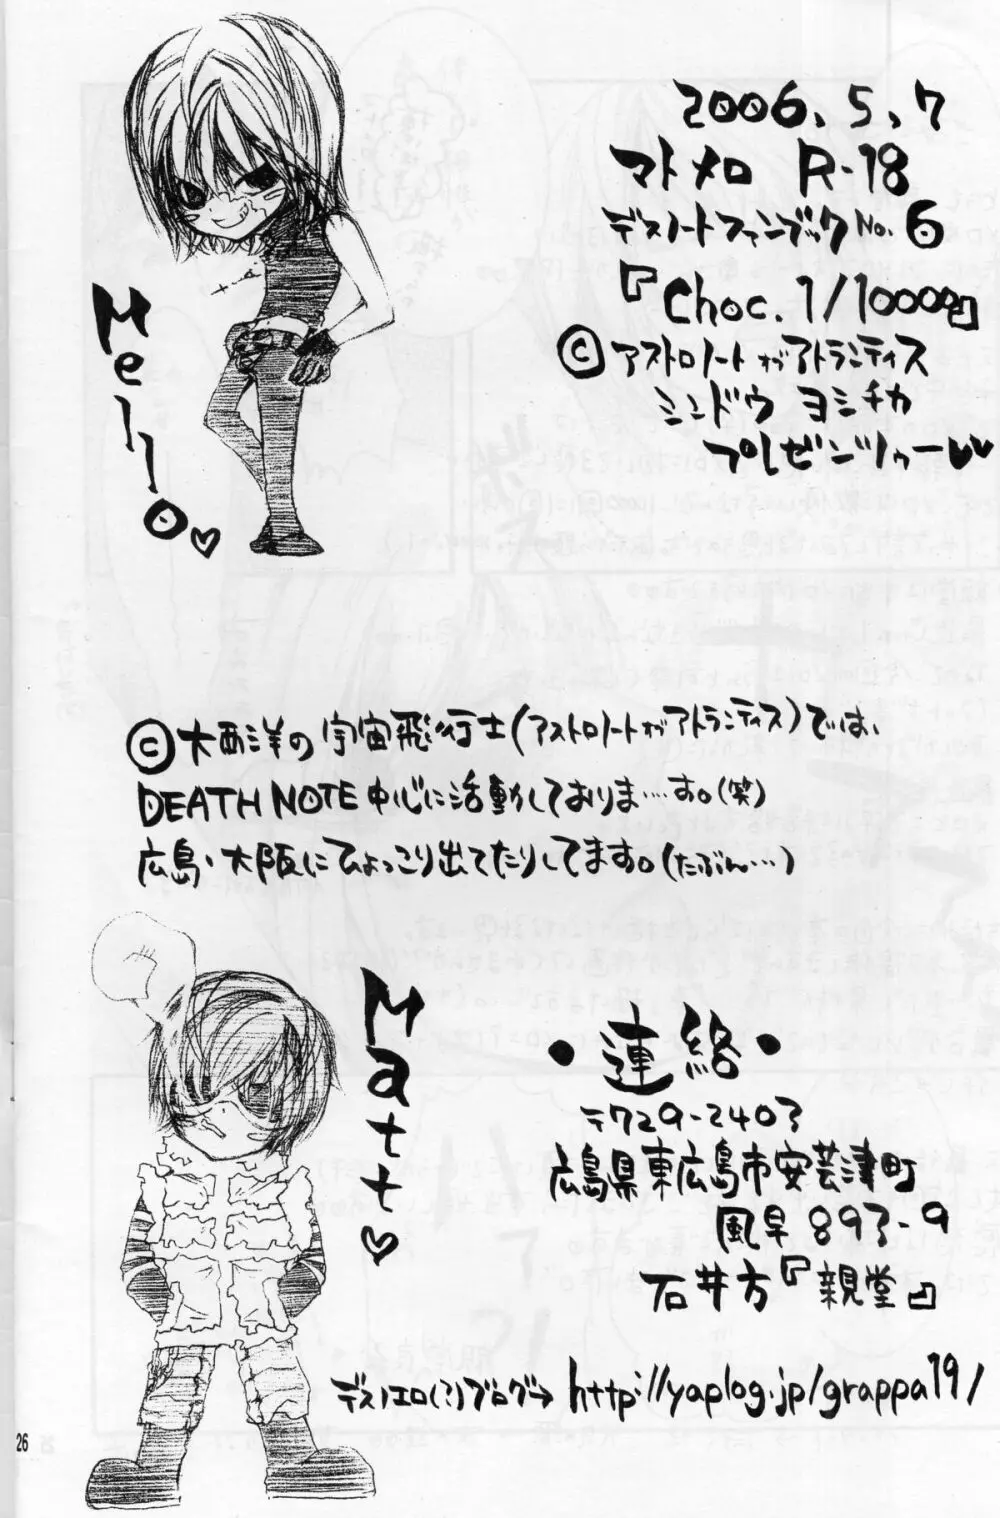 2006.5.7
マトメロ R-18
デスノートファンブックNo.6
『Choc.1/10000』
©アストロノートがアトランティス
シンドウ ヨシチカ
プレゼンツゥー♥♥
Mello♡
©大西洋の宇宙飛行士(アストロノートがアトランティス)では、
DEATH NOTE中心に活動しておりま…す。(笑)
広島・大阪にひょっこり出てたりしてます。(たぶん…)
Matt♡
・連絡・
〒729-2403
広島県東広島市安芸津町
風早893-9
石井方『親堂』
デスノエロ(?)ブログ→http://yaplog.jp/grappa19/
26